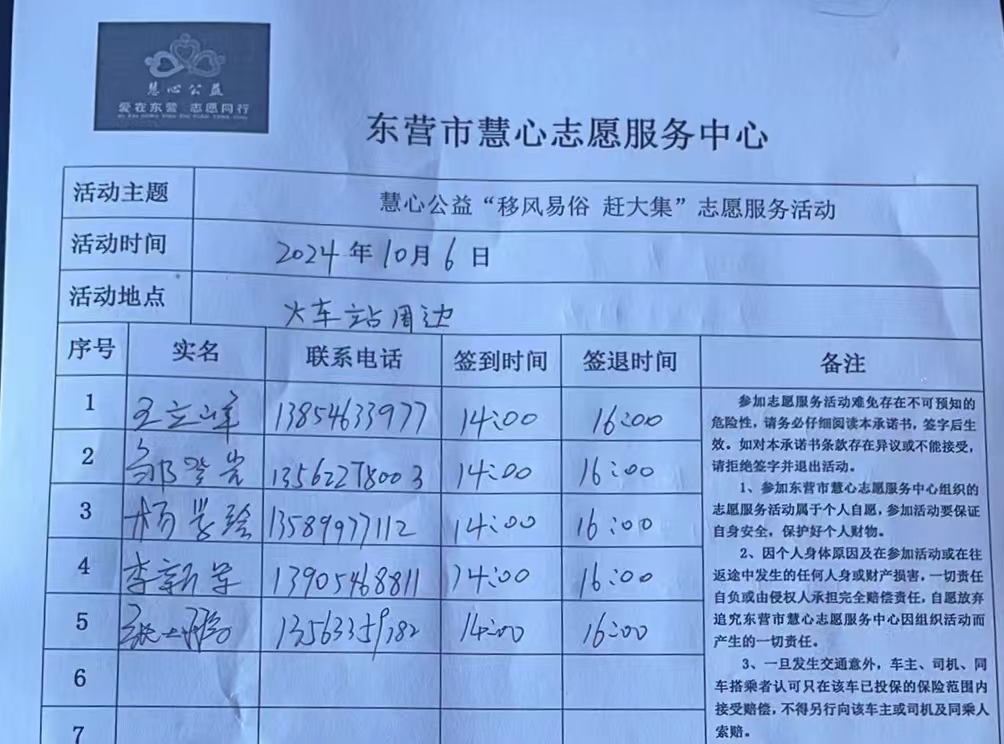 慧心公益
爱在东营 志愿同行
东营市慧心志愿服务中心
活动主题 慧心公益“移风易俗 赶大集”志愿服务活动
活动时间 2024年10月6日
活动地点 火车站周边
序号 实名 联系电话 签到时间 签退时间 备注
1 王立峰 13854633977 14:00 16:00
2 13562278003 14:00 16:00
3 杨 13589977112 14:00 16:00
4 李新军 13905468811 14:00 16:00
5 张 14:00 16:00
6
7
参加志愿服务活动难免存在不可预知的
危险性，请务必仔细阅读本承诺书，签字后生
效。如对本承诺书条款存在异议或不能接受，
请拒绝签字并退出活动。
1、参加东营市慧心志愿服务中心组织的
志愿服务活动属于个人自愿，参加活动要保证
自身安全，保护好个人财物。
2、因个人身体原因及在参加活动或在往
返途中发生的任何人身或财产损害，一切责任
自负或由侵权人承担完全赔偿责任，自愿放弃
追究东营市慧心志愿服务中心因组织活动而
产生的一切责任。
3、一旦发生交通意外，车主、司机、同
车搭乘者认可只在该车已投保的保险范围内
接受赔偿，不得另行向该车主或司机及同乘人
索赔。